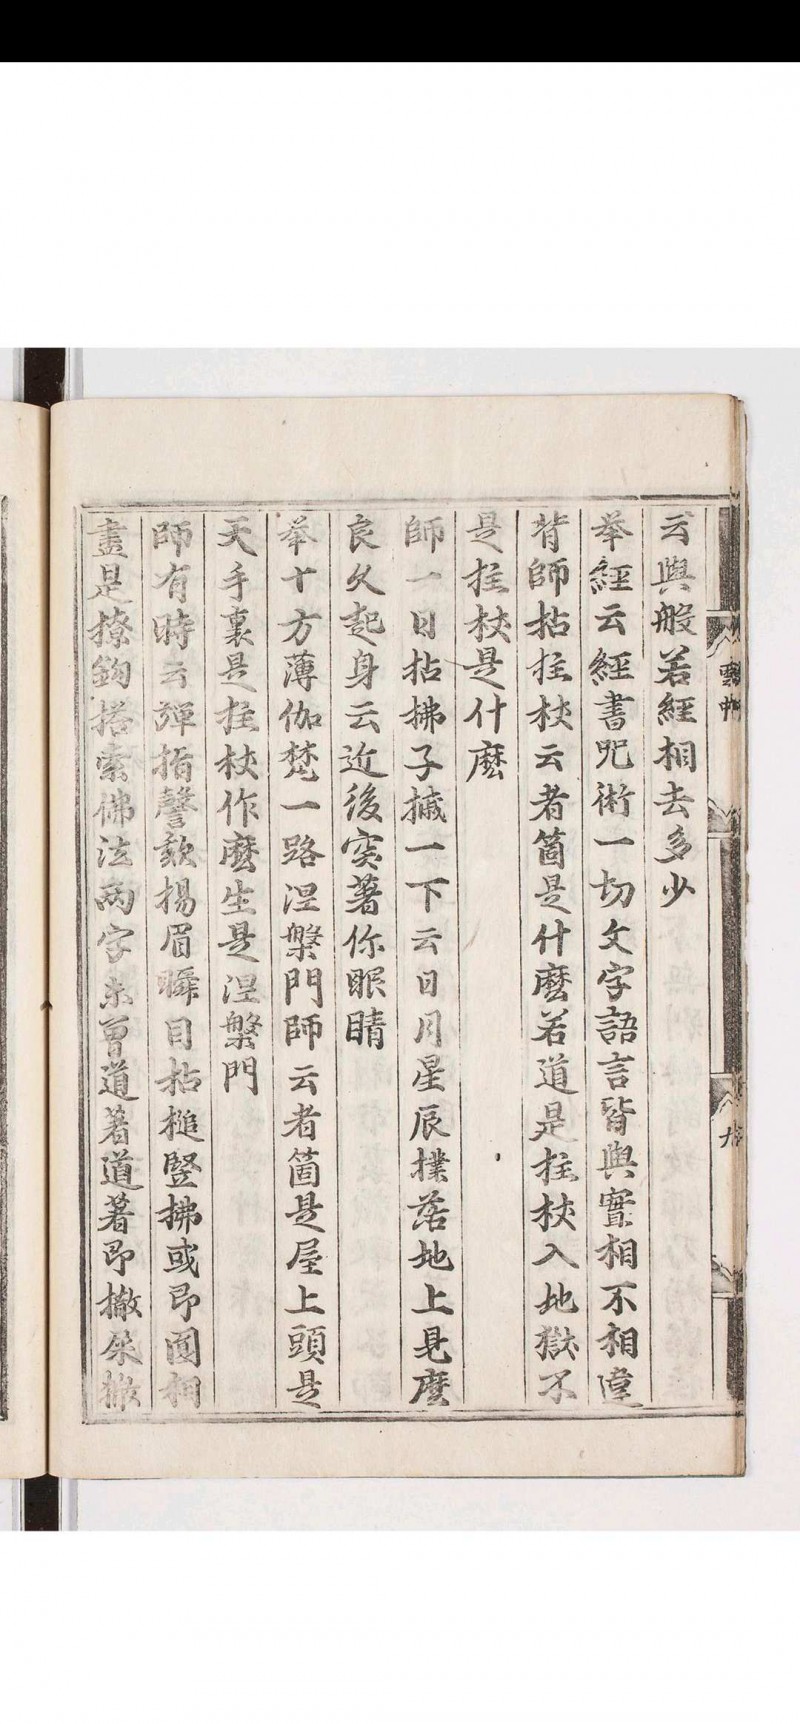 云與般若經相去多少
舉經云經書咒術一切文字語言皆與實相不相違
背師拈拄杖云者箇是什麼若道是拄杖入地獄不
是拄杖是什麼
師一日拈拂子摵一下云日月星辰撲落地上見麼
良久起身云近後突著你眼睛
举十方薄伽梵一路涅槃門師云者箇是屋上頭是
天手裏是拄杖作麼生是涅槃門
師有時云弹指謦欬揚眉瞬目拈槌竪拂或即圓相
盡是撩鈎搭索佛法两字未曾道著道著即撒屎撒
雲中
九